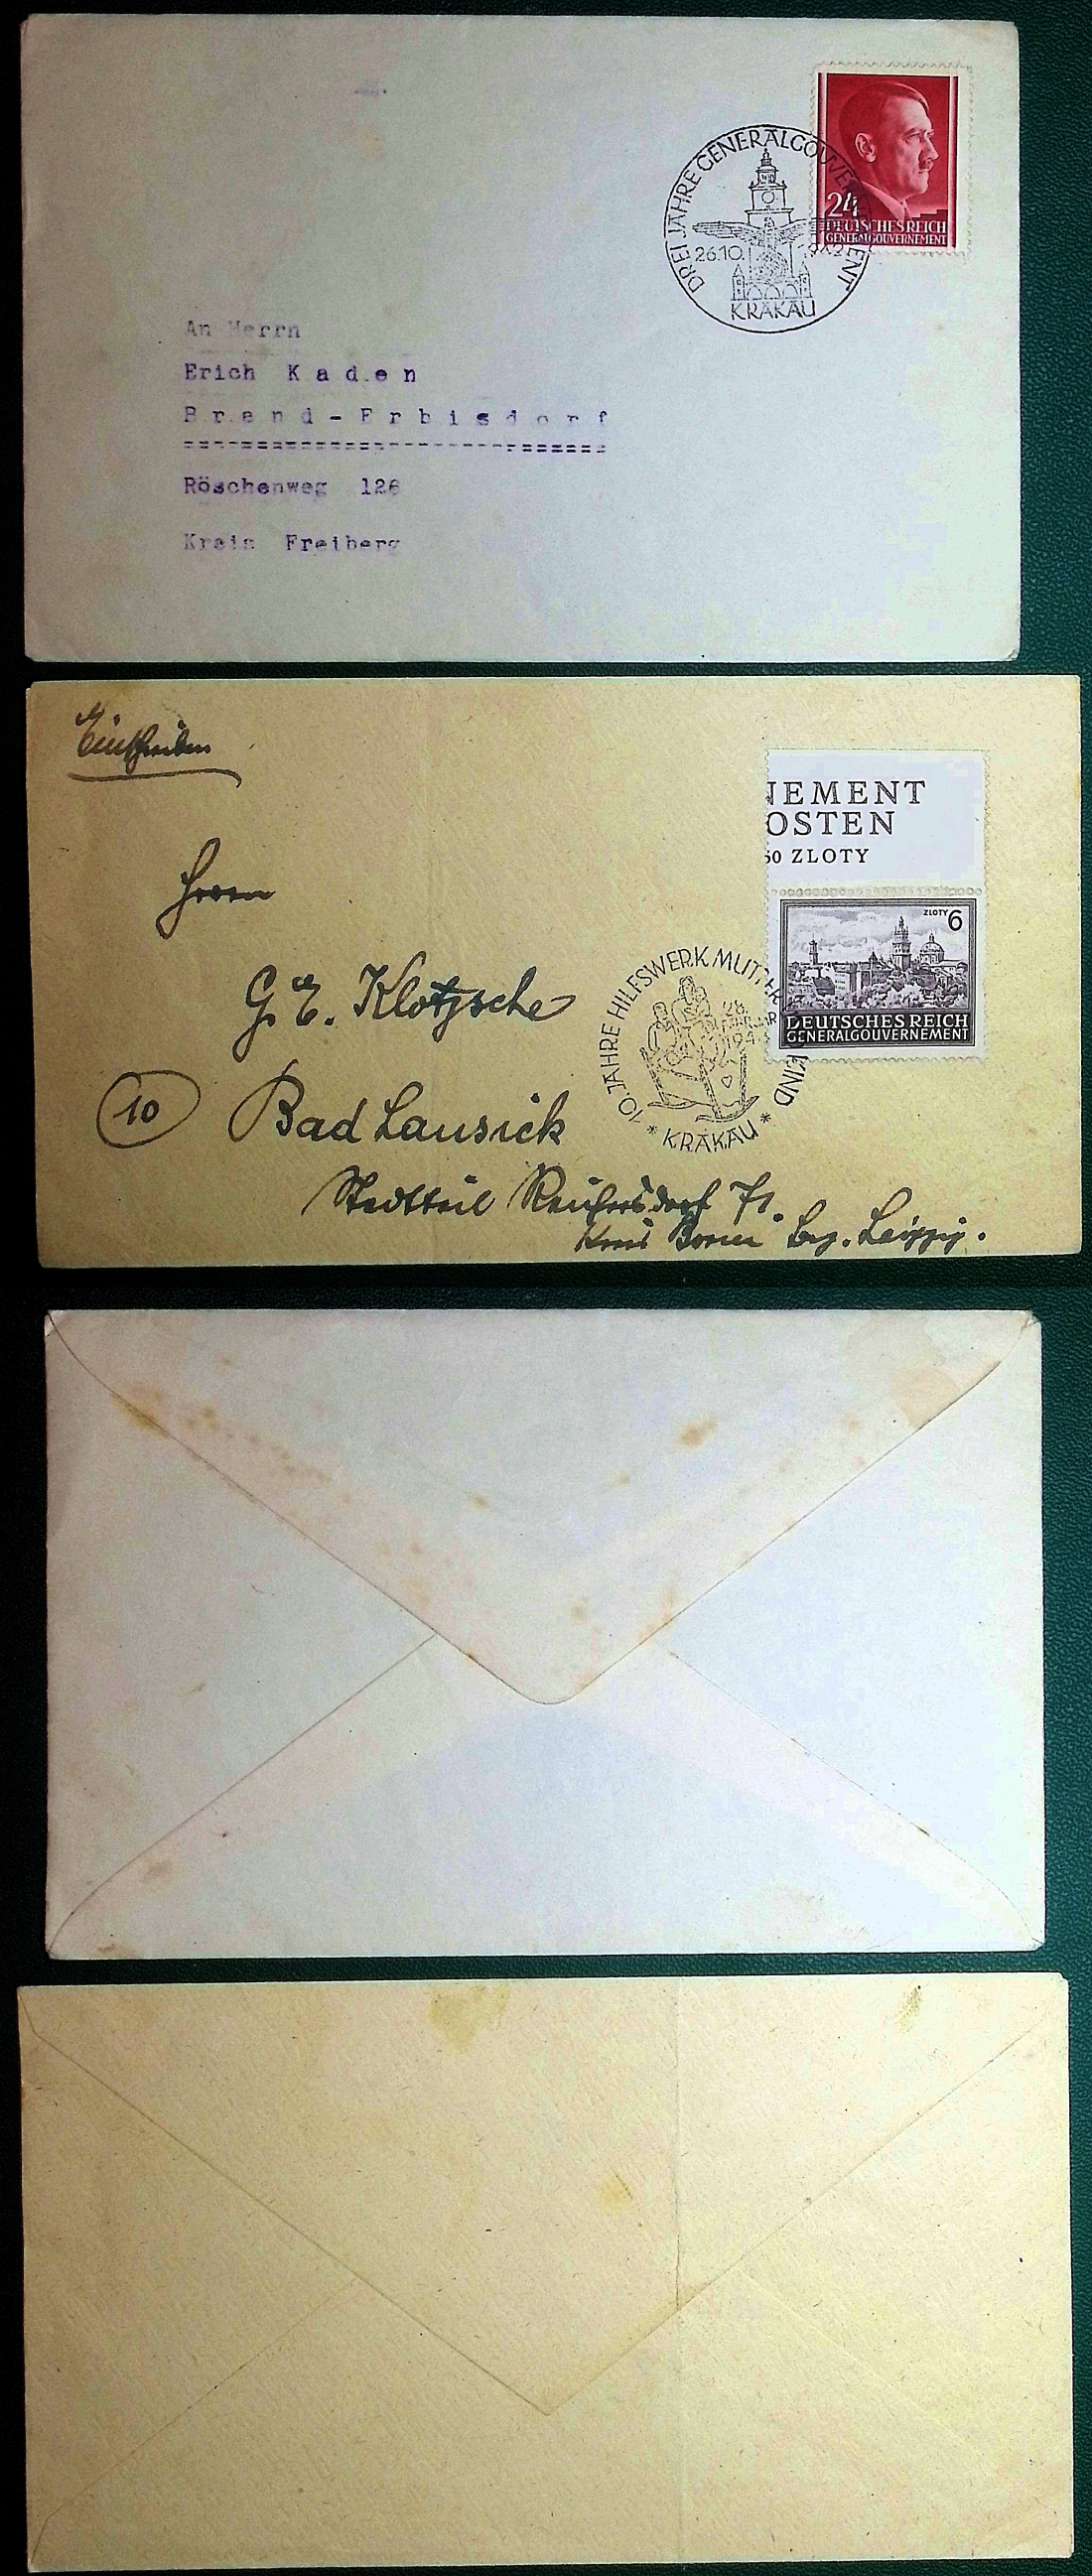 DREI JAHRE GENERALGOUVERNEMENT
26.10. 1942
KRAKAU
24
DEUTSCHES REICH
GENERALGOUVERNEMENT
An Herrn
Erich Kaden
Brand-Erbisdorf
Röschenweg 126
Kreis Freiberg
Einschreiben
NEMENT
OSTEN
50 ZLOTY
ZLOTY 6
DEUTSCHES REICH
GENERALGOUVERNEMENT
10 JAHRE HILFSWERK MUTTER KIND
26
* KRAKAU *
Herrn
G. E. Klotzsche
10 Bad Lausick
Stadtteil Reichersdorf 71.
Kreis Borna Bez. Leipzig.